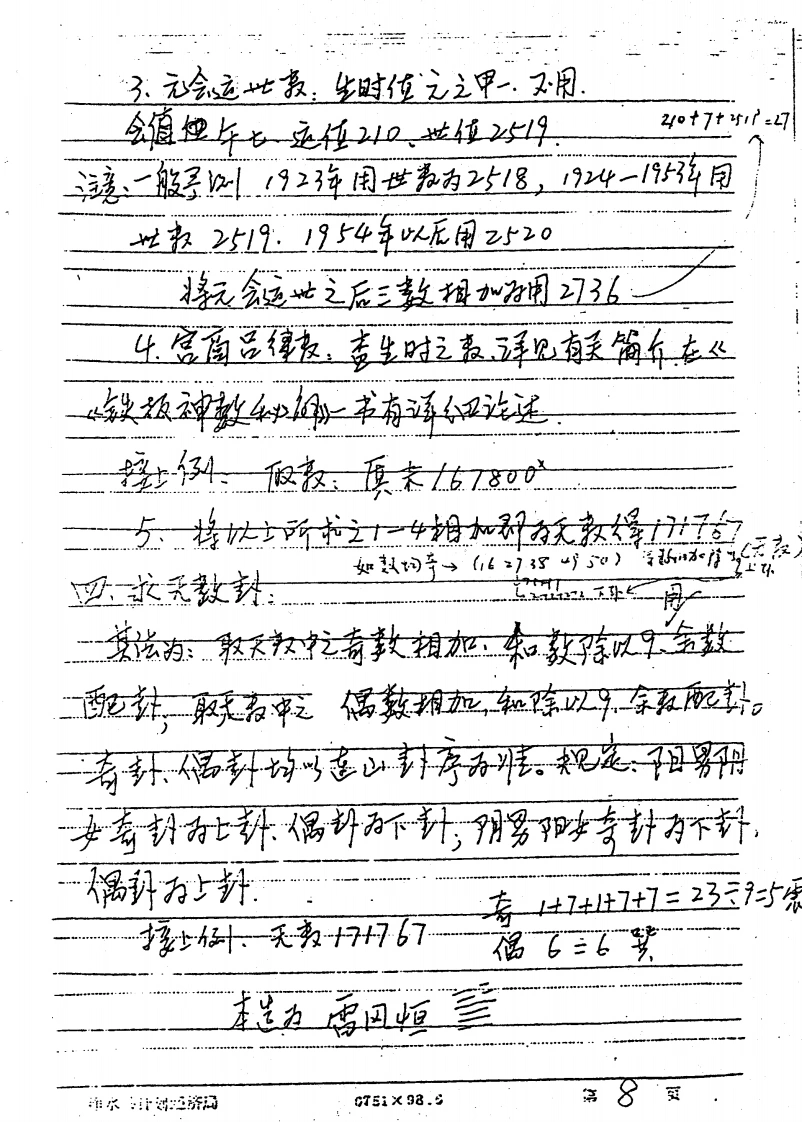 3、元会运世数：生时值元之甲一.不用.
会值 午七、运值210、世值2519.
210+7+2519=27
注意：一般 1923年用世数为2518，1924—1953年用
世数 2519. 1954年以后用2520
将元会运世之后三数相加为用2736
4.宫商吕律数：查生时之数.详见有关简介.在《
《铁板神数秘例》一书有详细论述.
接上例：取数：真未167800
5、将以上所求之1—4相加即为天数得171767
如数均奇→(16 2738 49 50)
四、求天数卦： 用
其法为：取天数中之奇数相加、和数除以9、余数
配卦；取天数中之 偶数相加，和除以9、余数配卦。
奇卦、偶卦均以连山卦序为准。规定：阳男阴
女奇卦为上卦、偶卦为下卦；阴男阳女奇卦为下卦，
偶卦为上卦.
奇 1+7+1+7+7=23÷9=5震
接上例、天数171767
偶 6÷6 巽
本造为 雷风恒 ䷟
计划经济局 0751×98.5 第 8 页